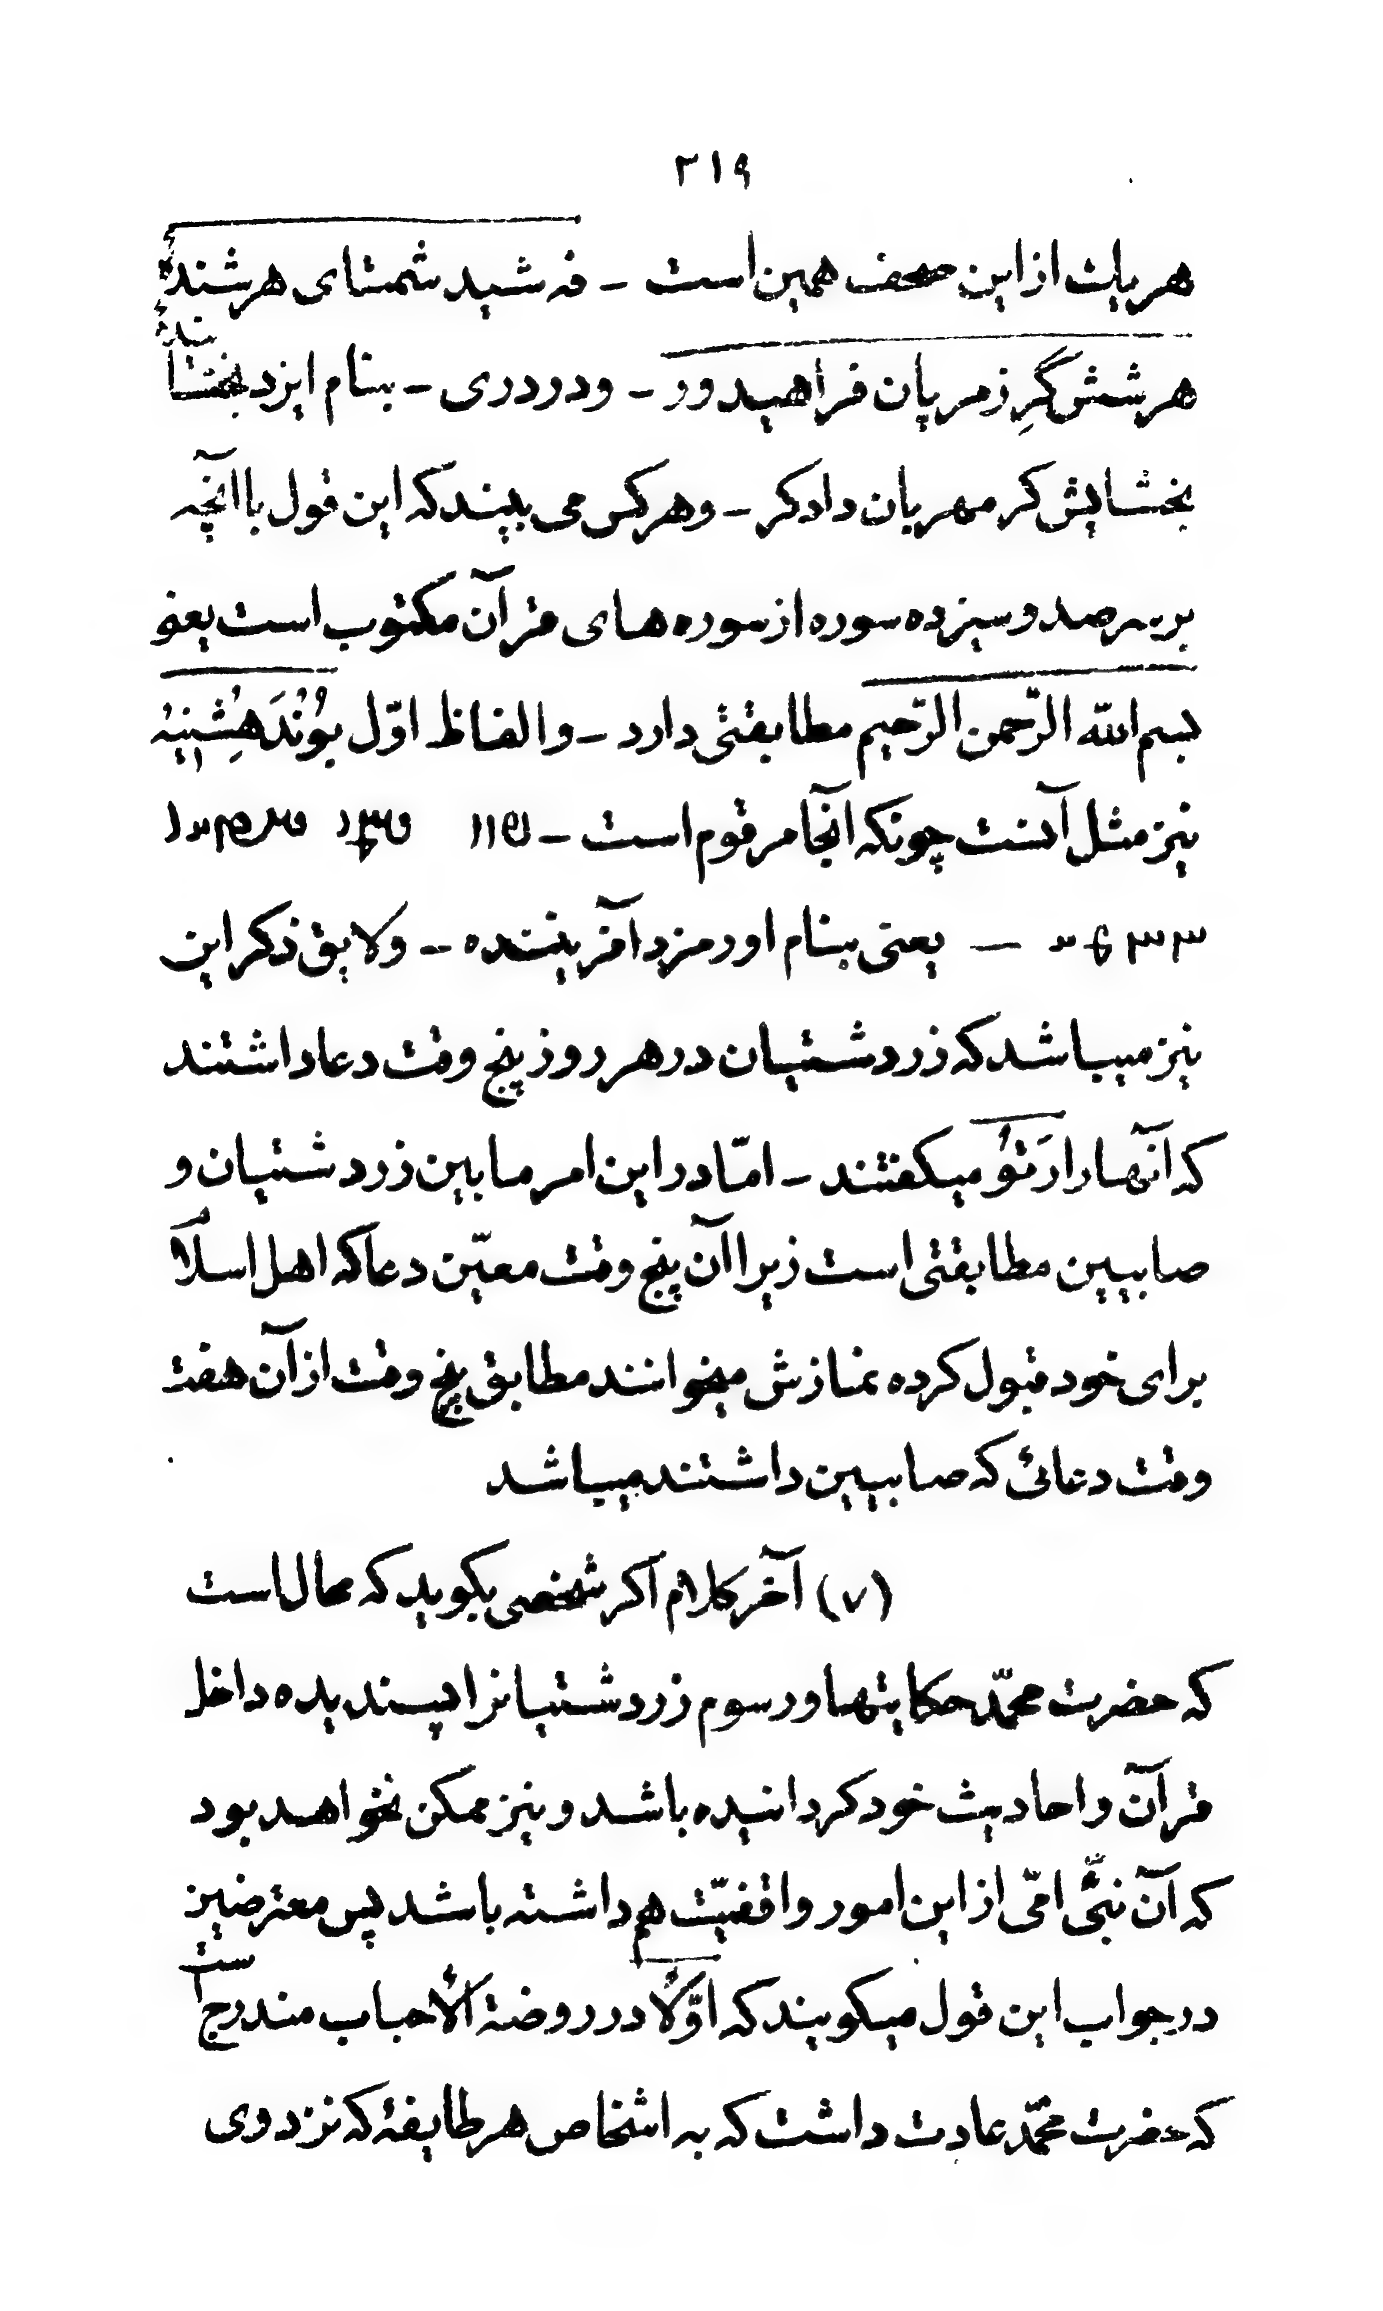 ٣١٩
هر یك از این صحف همین است - فه شید شمتای هرشندهٔ
هرششگرِ زمرپان فراهیدور - و در دری - بنام ایزد بخشایندهٔ
بخشایش گر مهربان دادگر - و هر کس می بیند که این قول با آنچه
بر سر صد و سیزده سوره از سوره های قرآن مکتوب است یعنی
بسم الله الرّحمن الرّحیم مطابقتی دارد - و الفاظ اوّل بُونْدَهِشْنِیهْ
نیز مثل آنست چونکه آنجا مرقوم است -
— یعنی بنام اورمزد آفریننده - و لایق ذکر این
نیز میباشد که زردشتیان در هر روز پنج وقت دعا داشتند
که آنها را رَتُو میگفتند - امّا در این امر ما بین زردشتیان و
صابیین مطابقتی است زیرا آن پنج وقت معیّن دعا که اهل اسلام
برای خود قبول کرده نمازش میخوانند مطابق پنج وقت از آن هفت
وقت دعائی که صابیین داشتند میباشد
(٧) آخر کلام اگر شخصی بگوید که محال است
که حضرت محمّد حکایتها و رسوم زردشتیانرا پسندیده داخل
قرآن و احادیث خود گردانیده باشد و نیز ممکن نخواهد بود
که آن نبیّ امّی از این امور واقفیّت هم داشته باشد پس معترضین
در جواب این قول میگویند که اوّلاً در روضة الأحباب مندرج است
که حضرت محمّد عادت داشت که به اشخاص هر طایفهٔ که نزد وی